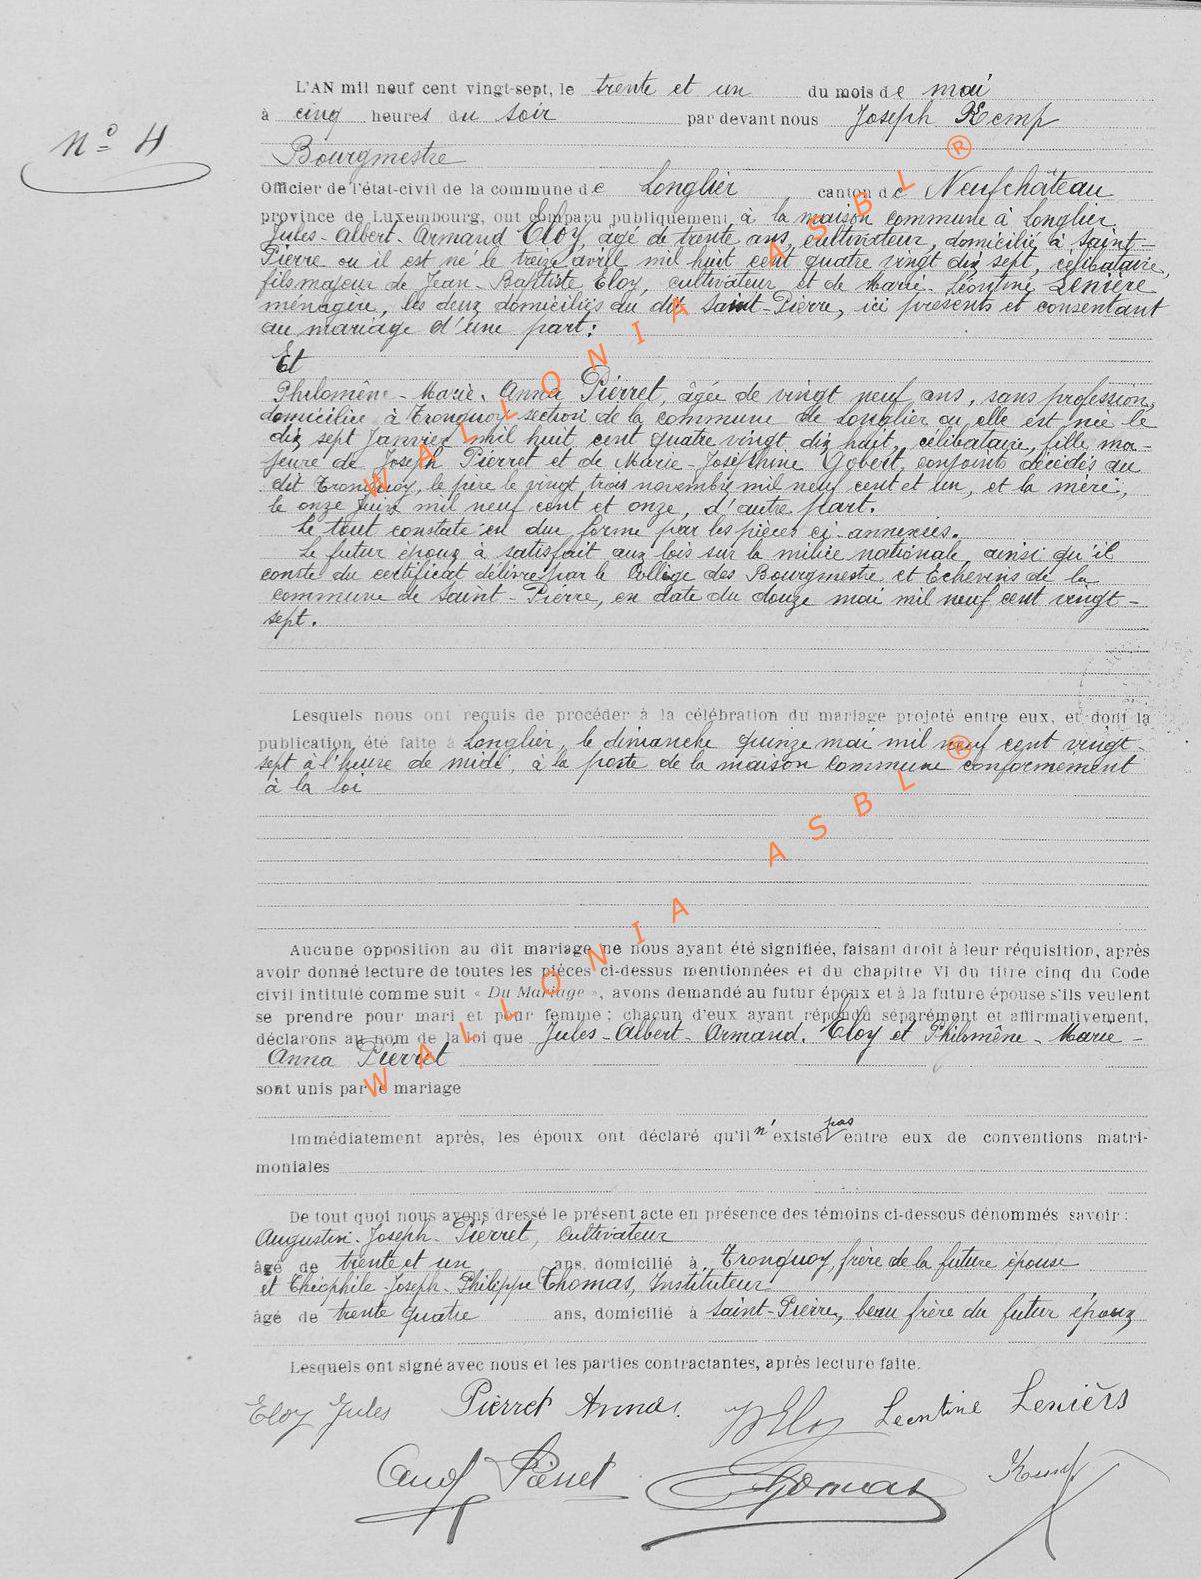 L'AN mil neuf cent vingt-sept, le trente et un du mois de mai
à cinq heures du soir par devant nous Joseph Kemp
N° 4
Bourgmestre
Officier de l'état-civil de la commune de Longlier canton de Neufchâteau
province de Luxembourg, ont comparu publiquement à la maison commune à Longlier
Jules-Albert-Armand Eloy, âgé de trente ans, cultivateur, domicilié à Saint-
Pierre ou il est né le treize avril mil huit cent quatre vingt dix sept, célibataire,
fils majeur de Jean-Baptiste Eloy, cultivateur et de Marie-Léontine Lenière
ménagère, les deux domiciliés au dit Saint-Pierre, ici présents et consentant
au mariage d'une part;
Et
Philomène-Marie-Anna Pierret, âgée de vingt neuf ans, sans profession,
domiciliée à Tronquoy section de la commune de Longlier ou elle est née le
dix sept Janvier mil huit cent quatre vingt dix huit, célibataire, fille ma-
jeure de Joseph Pierret et de Marie-Joséphine Gobert, conjoints décédés au
dit Tronquoy, le père le vingt trois novembre mil neuf cent et un, et la mère,
le onze Juin mil neuf cent et onze, d'autre part.
Le tout constaté en due forme par les pièces ci-annexées.
Le futur époux à satisfait aux lois sur la milice nationale ainsi qu'il
conste du certificat délivré par le Collège des Bourgmestre et Echevins de la
commune de Saint-Pierre, en date du douze mai mil neuf cent vingt-
sept.
Lesquels nous ont requis de procéder à la célébration du mariage projeté entre eux, et dont la
publication été faite à Longlier, le dimanche quinze mai mil neuf cent vingt-
sept à l'heure de midi, à la porte de la maison commune conformement
à la loi
Aucune opposition au dit mariage ne nous ayant été signifiée, faisant droit à leur réquisition, après
avoir donné lecture de toutes les pièces ci-dessus mentionnées et du chapitre VI du titre cinq du Code
civil intitulé comme suit « Du Mariage », avons demandé au futur époux et à la future épouse s'ils veulent
se prendre pour mari et pour femme ; chacun d'eux ayant répondu séparément et affirmativement,
déclarons au nom de la loi que Jules-Albert-Armand. Eloy et Philomène-Marie-
Anna Pierret
sont unis par le mariage
Immédiatement après, les époux ont déclaré qu'il n'existe pas entre eux de conventions matri-
moniales
De tout quoi nous avons dressé le présent acte en présence des témoins ci-dessous dénommés savoir :
Augustin-Joseph-Pierret, cultivateur
âgé de trente et un ans, domicilié à Tronquoy, frère de la future épouse
et Théophile-Joseph-Philippe Thomas, Instituteur
âgé de trente quatre ans, domicilié à Saint-Pierre, beau frère du futur époux
Lesquels ont signé avec nous et les parties contractantes, après lecture faite.
Eloy Jules Pierret Anna. JBEloy Leontine Leniers
Aug Pierret Thomas Kemp
WALLONIA ASBL ®
WALLONIA ASBL ®